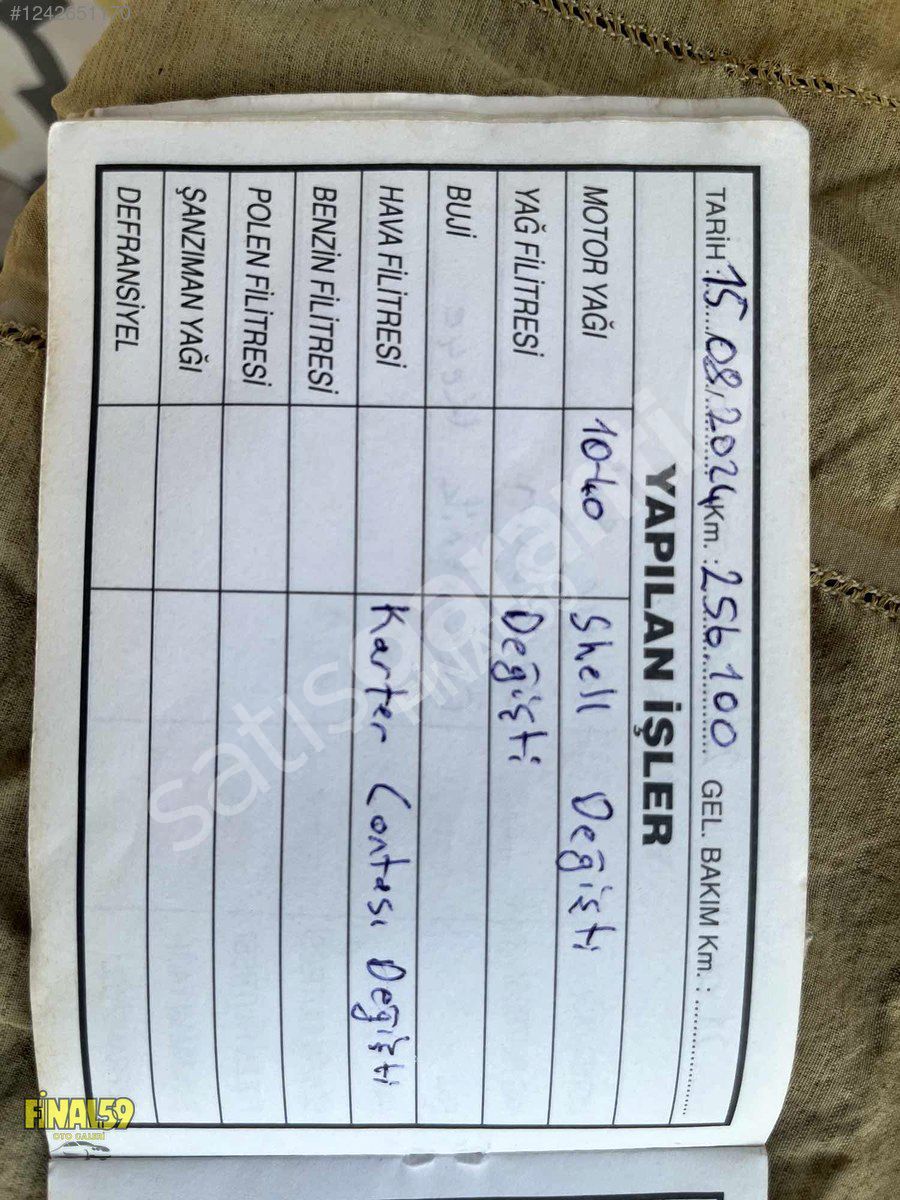 #1242651170
TARİH : 15.08./.2024 Km. : 256.100 GEL. BAKIM Km. : ..........
YAPILAN İŞLER
MOTOR YAĞI 10-40 Shell Değişti
YAĞ FİLİTRESİ Değişti
BUJİ
HAVA FİLİTRESİ Karter Contası Değişti
BENZİN FİLİTRESİ
POLEN FİLİTRESİ
ŞANZIMAN YAĞI
DEFRANSİYEL
FİNAL59
OTO GALERİ